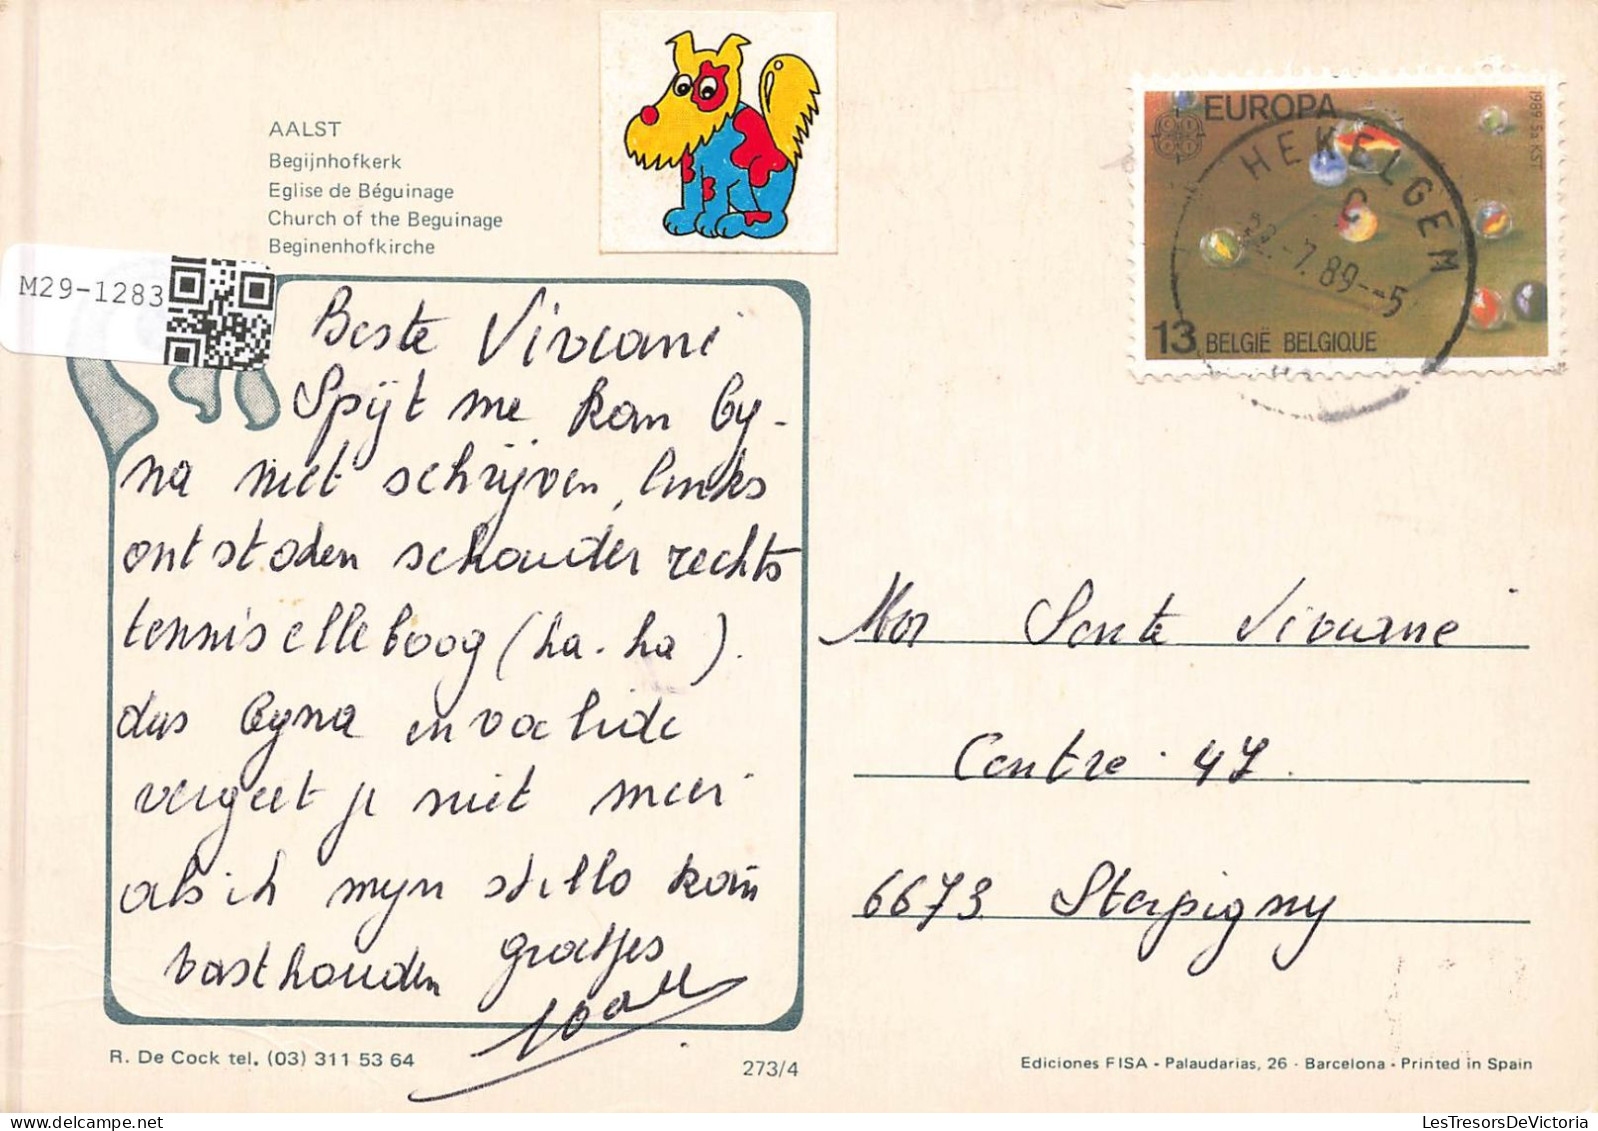 AALST
Begijnhofkerk
Eglise de Béguinage
Church of the Beguinage
Beginenhofkirche
M29-1283
EUROPA
1989 5a KST
HEKELGEM
C
-7.89--5
13 BELGIË BELGIQUE
Beste Viviani
Spijt me kan by-
na niet schrijven, links
ontstoken schouder rechts
tennis elleboog (ha-ha).
dus byna invalide
vergeet je niet meer
als ik myn stylo kan
vasthouden groetjes
Mor Sente Viviane
Centre 47.
6673 Sterpigny
R. De Cock tel. (03) 311 53 64
273/4
Ediciones FISA - Palaudarias, 26 - Barcelona - Printed in Spain
LesTresorsDeVictoria